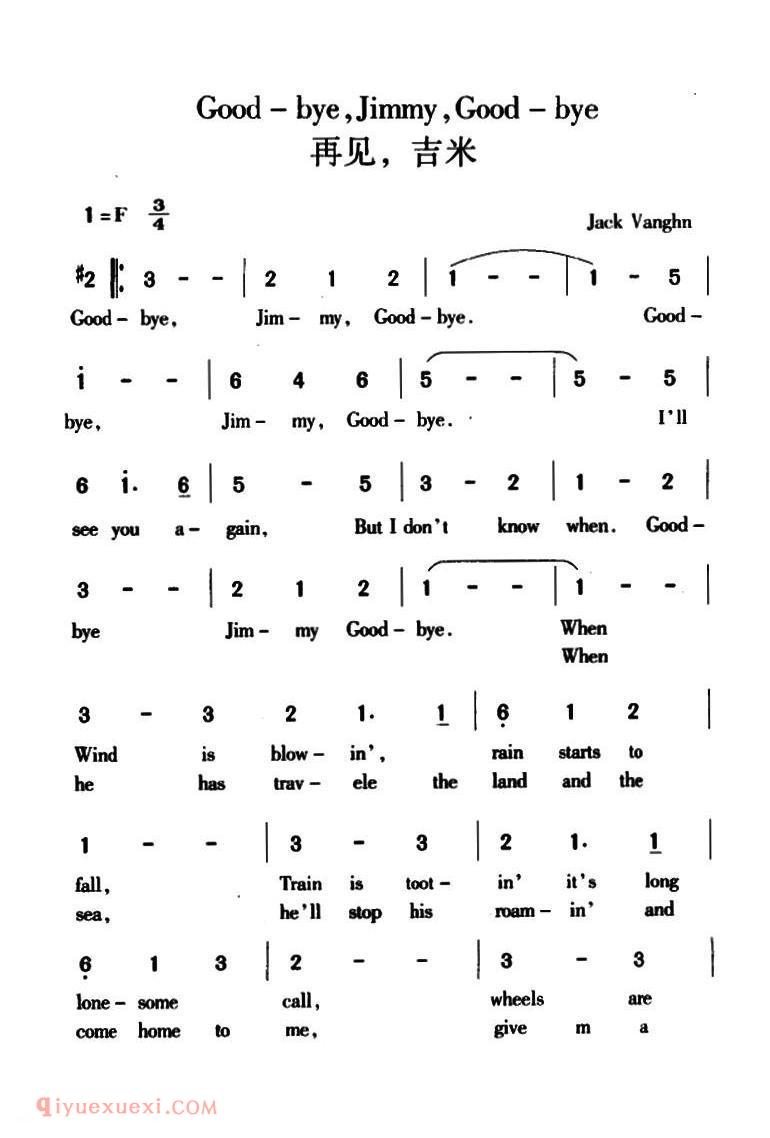 Good - bye, Jimmy, Good - bye
再见，吉米
1=F 3/4
Jack Vanghn
#2 |: 3 - - | 2 1 2 | 1 - - | 1 - 5 |
Good - bye, Jim - my, Good - bye. Good -
i - - | 6 4 6 | 5 - - | 5 - 5 |
bye, Jim - my, Good - bye. I'll
6 i. 6 | 5 - 5 | 3 - 2 | 1 - 2 |
see you a - gain, But I don't know when. Good -
3 - - | 2 1 2 | 1 - - | 1 - - |
bye Jim - my Good - bye. When
When
3 - 3 2 1. 1 | 6 1 2 |
Wind is blow - in', rain starts to
he has trav - ele the land and the
1 - - | 3 - 3 | 2 1. 1 |
fall, Train is toot - in' it's long
sea, he'll stop his roam - in' and
6 1 3 | 2 - - | 3 - 3 |
lone - some call, wheels are
come home to me, give m a
qiyuexuexi.COM